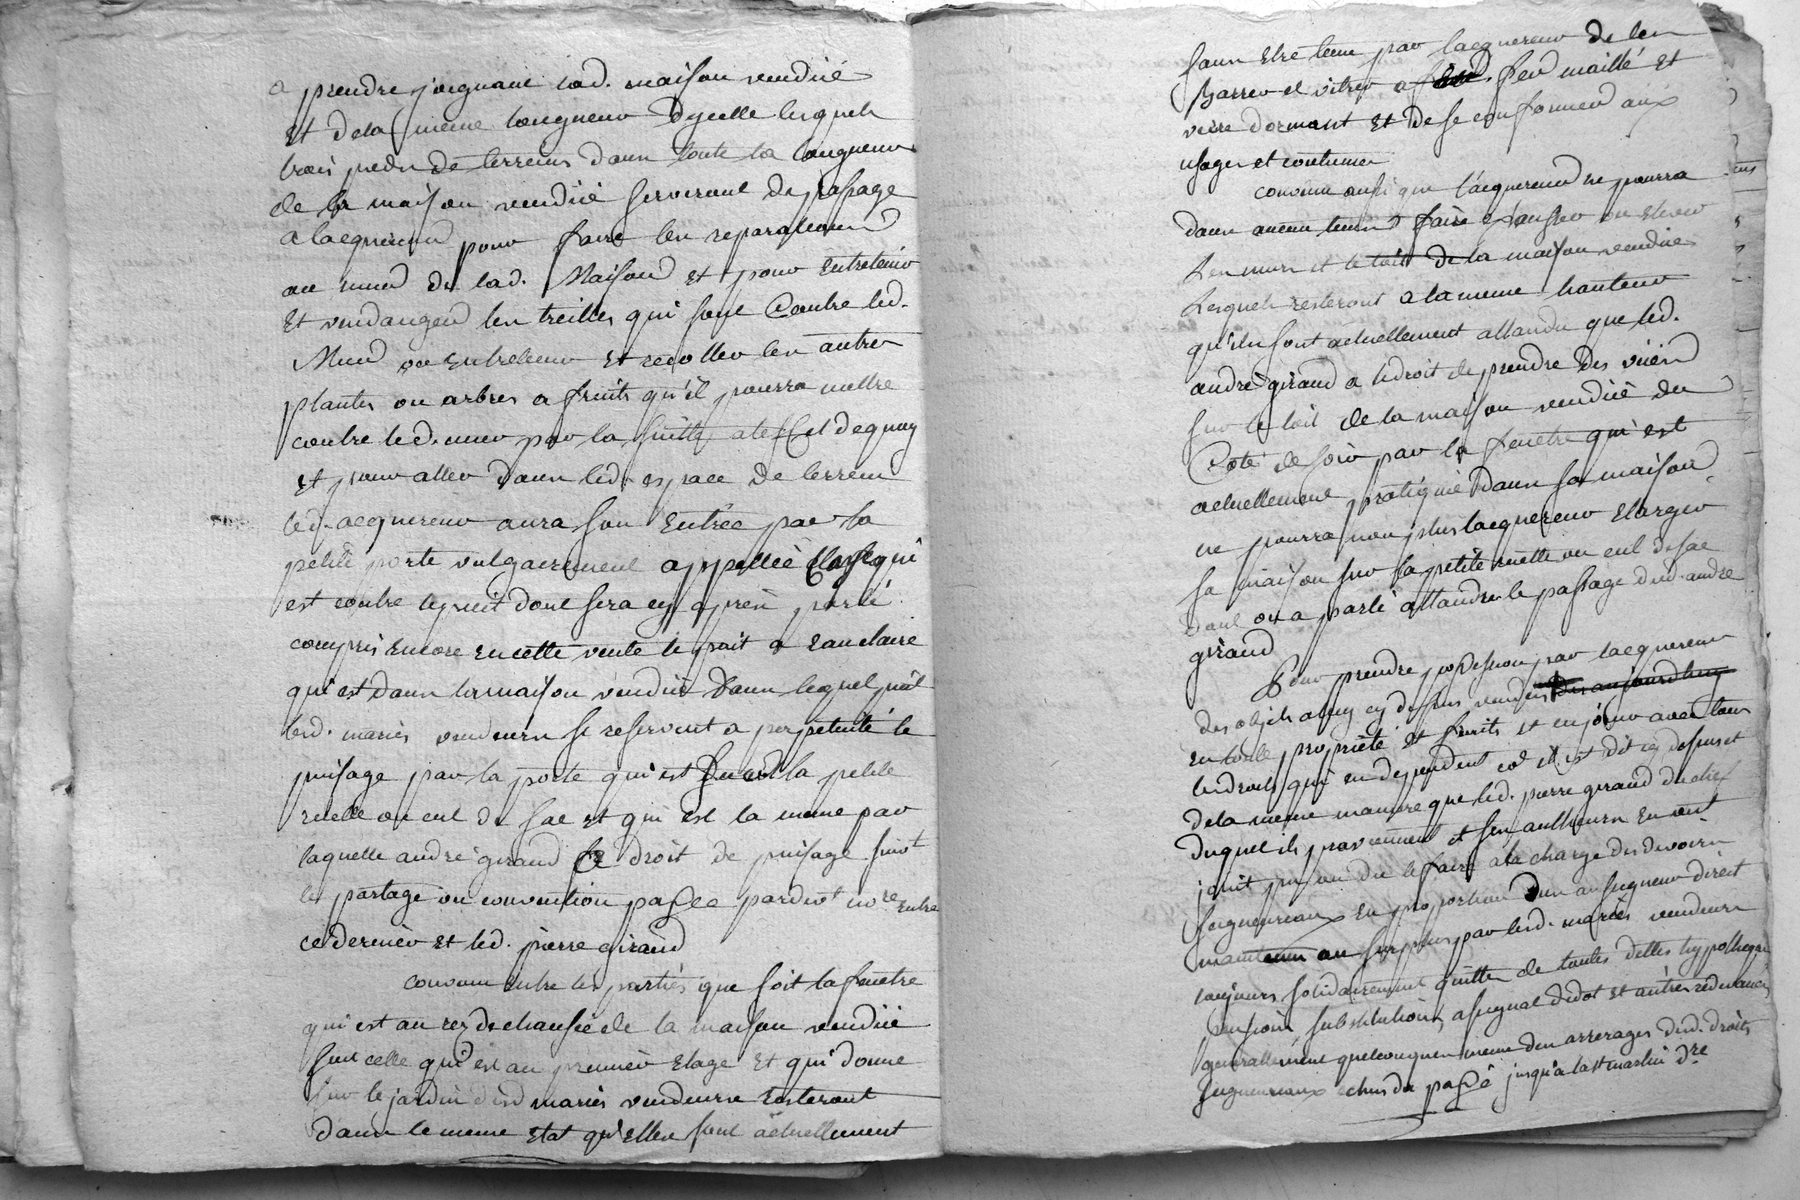 a prendre joignant lad. maison vendüe
et dela même longueur dycelle lesquels
trois pieds de terrein dans toute la longueur
de la maison vendüe serviront de passage
a lacquereur pour faire les reparations
au mur de lad. Maison et pour entretenir
et vendanger les treilles qui sont Contre led.
Mur ou entretenir et recolter les autres
plantes ou arbres a fruits qu'il pourra mettre
contre led. mur par la suitte a leffet dequoy
et pour aller dans led. espace de terrein
led. acquereur aura son entrée par la
petite porte vulgairement appellée qui
est contre le puit dont sera cy après parlé
compris encore en cette vente le puit a eau claire
qui est dans la maison vendüe dans lequel puit
lesd. mariés vendeurs se reservent a perpetuité le
puisage par la porte qui est sur la petite
ruelle ou cul de sac et qui est la meme par
laquelle andré giraud a droit de puisage suivt
les partage ou convention passée pardevt nore entre
ce dernier et led. pierre giraud
convenu entre les parties que soit la fenetre
qui est au rez de chaussée de la maison vendüe
soit celle qui est au premier etage et qui donne
sur le jardin desd mariés vendeurs resteront
dans le meme etat qu'elles sont actuellement
sauf etre tenu par lacquereur de les
Barrer et vitrer a fer maillé et
verre dormant et de se conformer aux
usages et coutumes
convenu aussi que l'acquereur ne pourra
dans aucun tems faire exausser ou elever
les murs et le toit de la maison vendüe
lesquels resteront a la meme hauteur
qu'ils sont actuellement attandu que led.
andré giraud a le droit de prendre des vües
sur le toit de la maison vendüe du
Coté de soir par la fenetre qui est
actuellement pratiquée dans sa maison
ne pourra non plus lacquereur elargir
sa maison sur la petite ruelle ou cul de sac
dont on a parlé attandu le passage dud. andré
giraud
Pour prendre possession par lacquereur
des objets a luy cy dessus vendus des aujourdhuy
en toute propriété et fruits et en jouir avec tous
les droits qui en dependent come il est dit cy dessus et
de la meme maniere que led. pierre giraud du chef
duquel ils proviennent et ses autheurs en ont
jouit pu ou du le faire a la charge des devoirs
seigneuriaux en proportion dus au seigneur direct
maintenu au surplus par lesd. mariés vendeurs
toujours solidairement quitte de toutes dettes hypotheques
pensions substitutions assignat de dot et autres redevances
generallement quelconques meme des arrerages desd. droits
seigneuriaux echus du passé jusqu'a la st martin dre